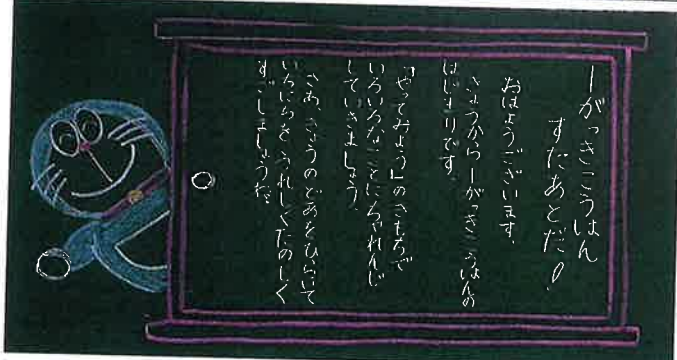 一がっきこうはん
すたあとだ！
おはようございます。
きょうから一がっきこうはんの
はじまりです。
「やってみよう」のきもちで
いろいろなことにちゃれんじ
していきましょう。
さあ、きょうのどあをひらいて
いちにちを、うれしくたのしく
すごしましょうだ。